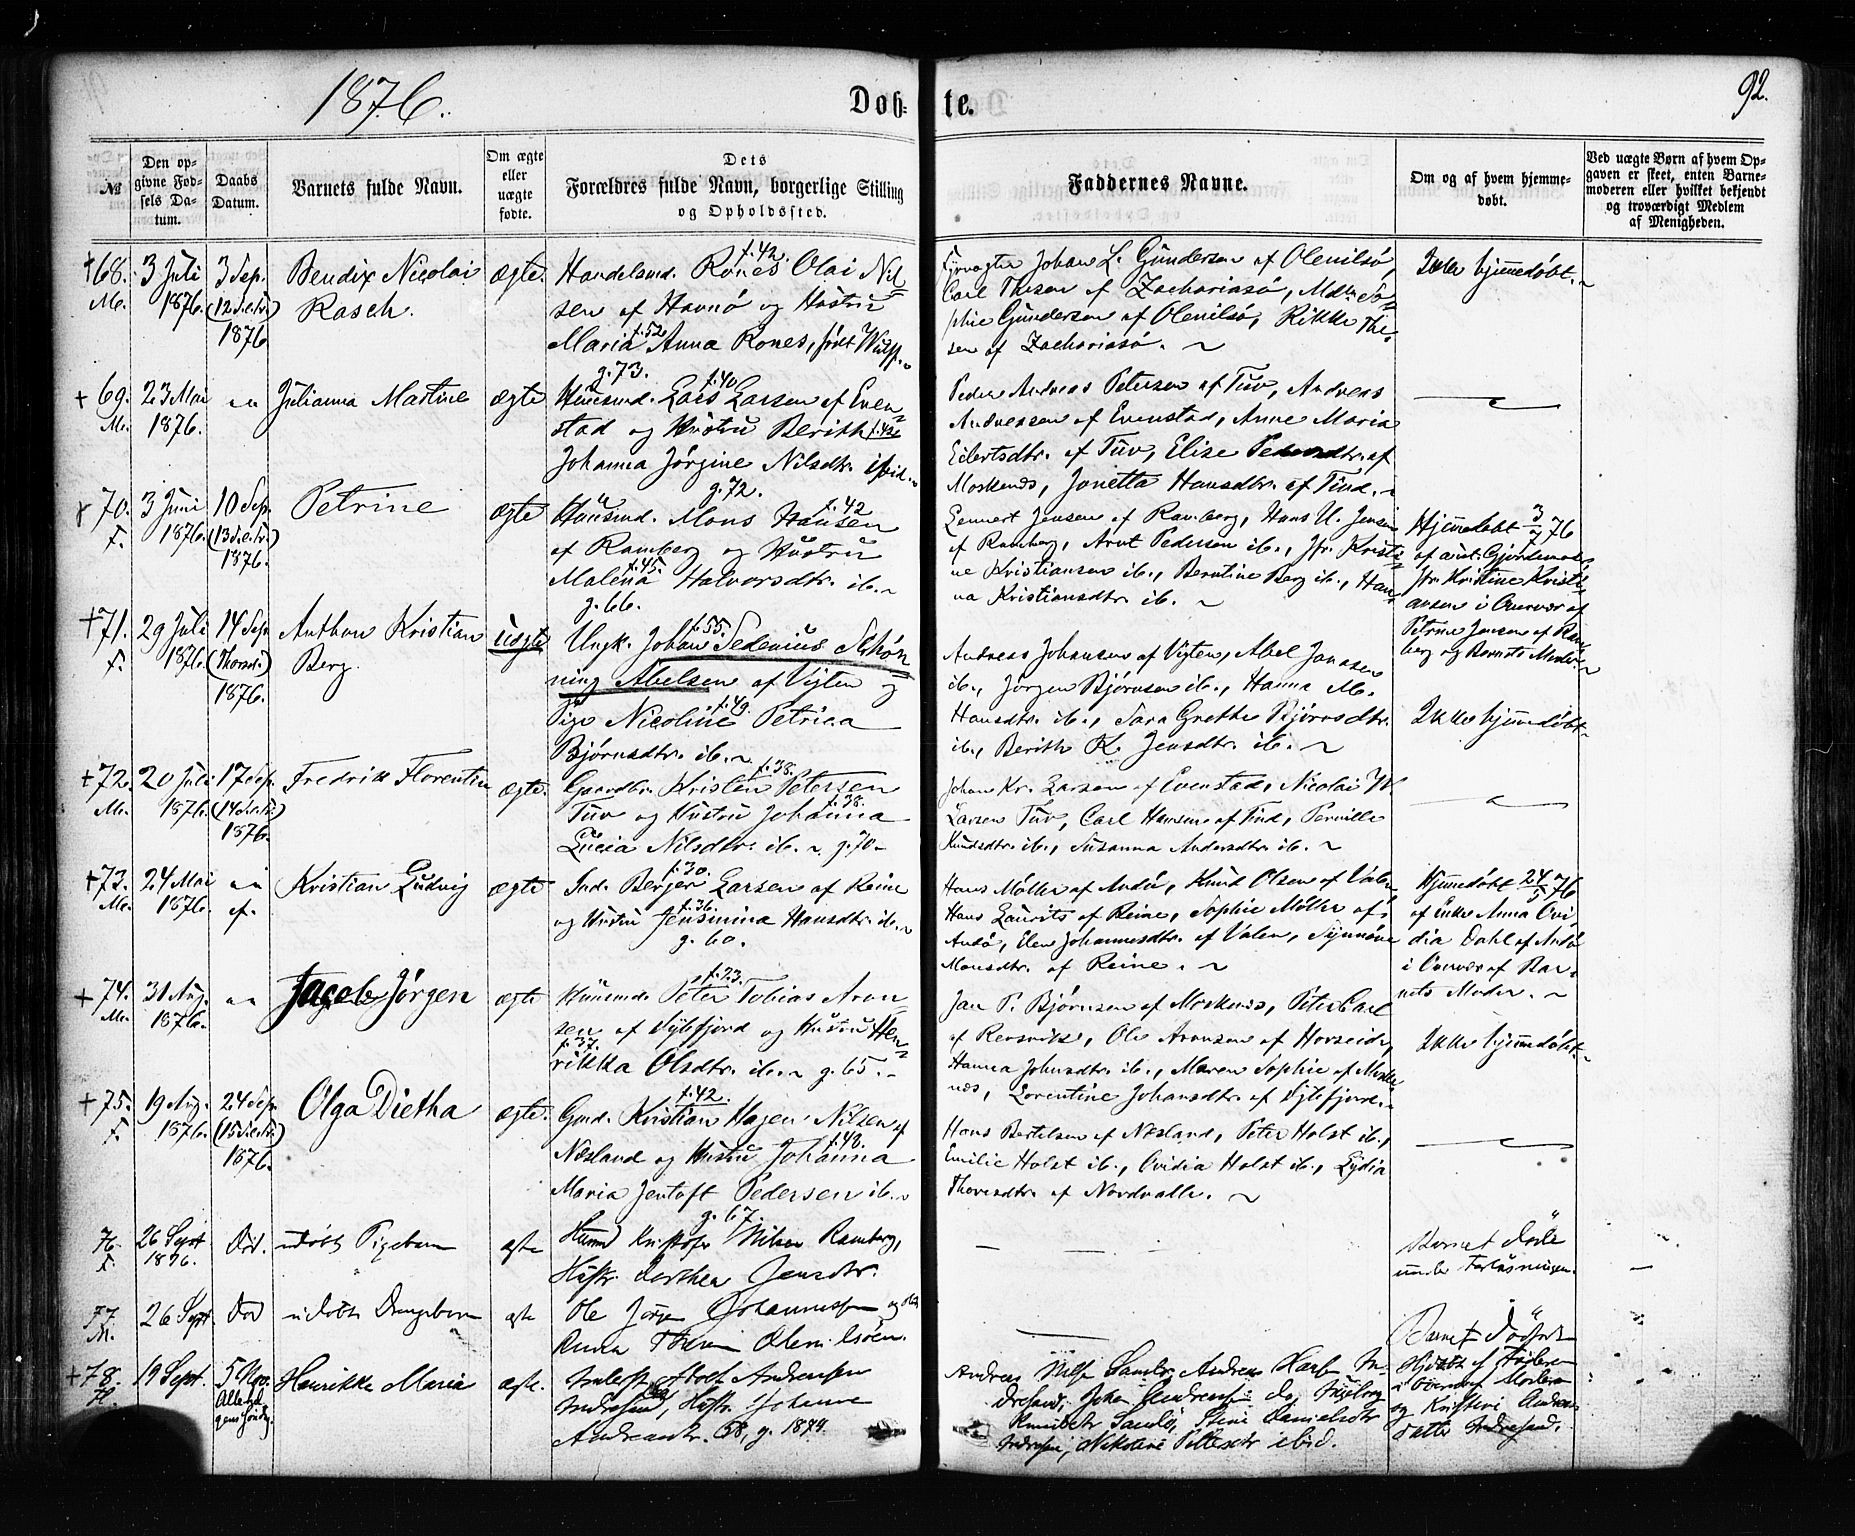 1876.
Døb-
te.
92.
№
Den op-
givne Fød-
sels Da-
tum.
Daabs
Datum.
Barnets fulde Navn.
Om ægte
eller
uægte
fødte.
Dets
Forældres fulde Navn, borgerlige Stilling
og Opholdssted.
Faddernes Navne.
Om og af hvem hjemme-
døbt.
Ved uægte Børn af hvem Op-
gaven er skeet, enten Barne-
moderen eller hvilket bekjendt
og troværdigt Medlem
af Menigheden.
+68. M.
3 Juli
1876.
3 Sep.
(12 S.e.tr.)
1876
Bendix Nicolai
Rasch.
ægte.
f.42.
Handelsmd. Rones Olai Nil-
sen af Havnø og Hustru
f.52
Maria Anna Rones, født Wulff.
g.73.
Fyrvogter Johan L. Gundersen af Olenilsø,
Carl Thesen af Zachariasø, Mdm So-
phie Gundersen af Olenilsø, Rikke The-
sen af Zachariasø.
Ikke hjemmedøbt.
+69. M.
23 Mai
1876.
Julianna Martine
ægte
f.40
Huusmd. Lars Larsen af Even-
stad og Hustru Berith f.42
Johanna Jørgine Nilsdtr. ibid.
g.72.
Peder Andreas Petersen af Tuv, Andreas
Andreassen af Evenstad, Anne Maria
Eilertsdtr. af Tuv, Elise Pedersdtr. af
Moskenes, Jonetta Hansdtr. af Tind.
70. F.
3 Juni
1876.
10 Sep.
(13 S.e.tr.)
1876.
Petrine
ægte
f.42
Huusmd. Mons Hansen
af Ramberg og Hustru
f.45.
Malena Halvorsdtr. ib.
g.66.
Lennert Jensen af Ramberg, Hans U. Jensen
af Ramberg, Arnt Pedersen ib., Jfr. Kristi-
ne Kristiansen ib., Berntine Berg ib., Han-
na Kristiansdtr. ib.
Hjemmedøbt 3/7 76
af ant. Gjordemoder
Jfr. Kristine Kristi-
ansen i Overvær af
Petrine Jensen af Ram-
berg og Barnets Moder.
+71. F.
29 Juli
1876.
14 Sep.
(Thorsd.)
1876.
Anthon Kristian
Berg.
uægte
f.55.
Ungk. Johan Sedenius Schøn-
ning Abelsen af Vigten og
f.49.
Pige Nicoline Petrica
Bjørnsdtr. ib.
Andreas Johansen af Vigten, Abel Jonassen
ib., Jørgen Bjørnsen ib., Hanna M.
Hansdtr. ib., Sara Grethe Bjørnsdtr.
ib., Berith K. Jensdtr. ib.
Ikke hjemmedøbt.
+72. M.
20 Juli
1876.
17 Sep.
(14 S.e.tr.)
1876.
Fredrik Florentin
ægte.
f.38.
Gaardbr. Kristen Petersen
f.38.
Tuv og Hustru Johanna
Lucia Nilsdtr. ib. g.70
Johan Kr. Larsen af Evenstad, Nicolai W.
Larsen Tuv, Carl Hansen af Tind, Pernille
Knudsdtr. ib., Susanna Andersdtr. ib.
+73. M.
24 Mai
1876.
Kristian Ludvig
ægte
f.30.
Ind. Berger Larsen af Reine
f.36.
og Hustru Jensmina Hansdtr. ib.
g.60.
Hans Møller af Andø, Knud Olsen af Valen
Hans Laurits af Reine, Sophie Møller af
Andø, Elen Johannesdtr. af Valen, Synnøve
Monsdtr. af Reine.
Hjemmedøbt 24/5 76
af Enke Anna Ovi-
dia Dahl af Andø
i Overvær af Bar-
nets Moder.
+74. M.
31 Aug.
1876.
Jacob Jørgen
ægte
f.23.
Huusmd. Peter Tobias Aron-
sen af Sylefjord og Hustru Hen-
f.37.
rikka Olsdtr. ib. g.65.
Jan P. Bjørnsen af Moskenes, Peter Carl
af Rensvik, Ole Aronsen af Horseide,
Hanna Johnsdtr. ib., Maren Sophie af Moske-
nes, Lorentine Johansdtr. af Sylefjord.
Ikke hjemmedøbt.
+75. F.
19 Aug.
1876.
24 Sep.
(15 S.e.tr.)
1876.
Olga Dietha
ægte.
f.42.
Gmd. Kristian Hagen Nilsen af
f.48.
Næsland og Hustru Johanna
Maria Jentoft Pedersen ib.
g.67.
Hans Bertelsen af Næsland, Peter Holst ib.,
Emilie Holst ib., Ovidia Holst ib., Lydia
Thoresdtr. af Nordvalle.
76. F.
26 Sept
1876.
Død.
udøbt Pigebarn
ægte
Huusmd Kristofer Nilsen Ramberg,
Hustr. Dorthea Jensdtr.
Barnet døde
under Forløsningen.
77. M.
26 Sept.
Død
udøbt Drengebarn
ægte
Ole Jørgen Johannessen og
Anna
Barnet Dødfødt
+78.
19 Sept.
5 Nov.
Allehel-
gens Søndg.
Henrikke Maria
ægte.
Andreassen
Hustr. Johanne
Andreasdtr. 58, g. 1874.
Andreas
ibid.
og Kristine Andreas-
datter